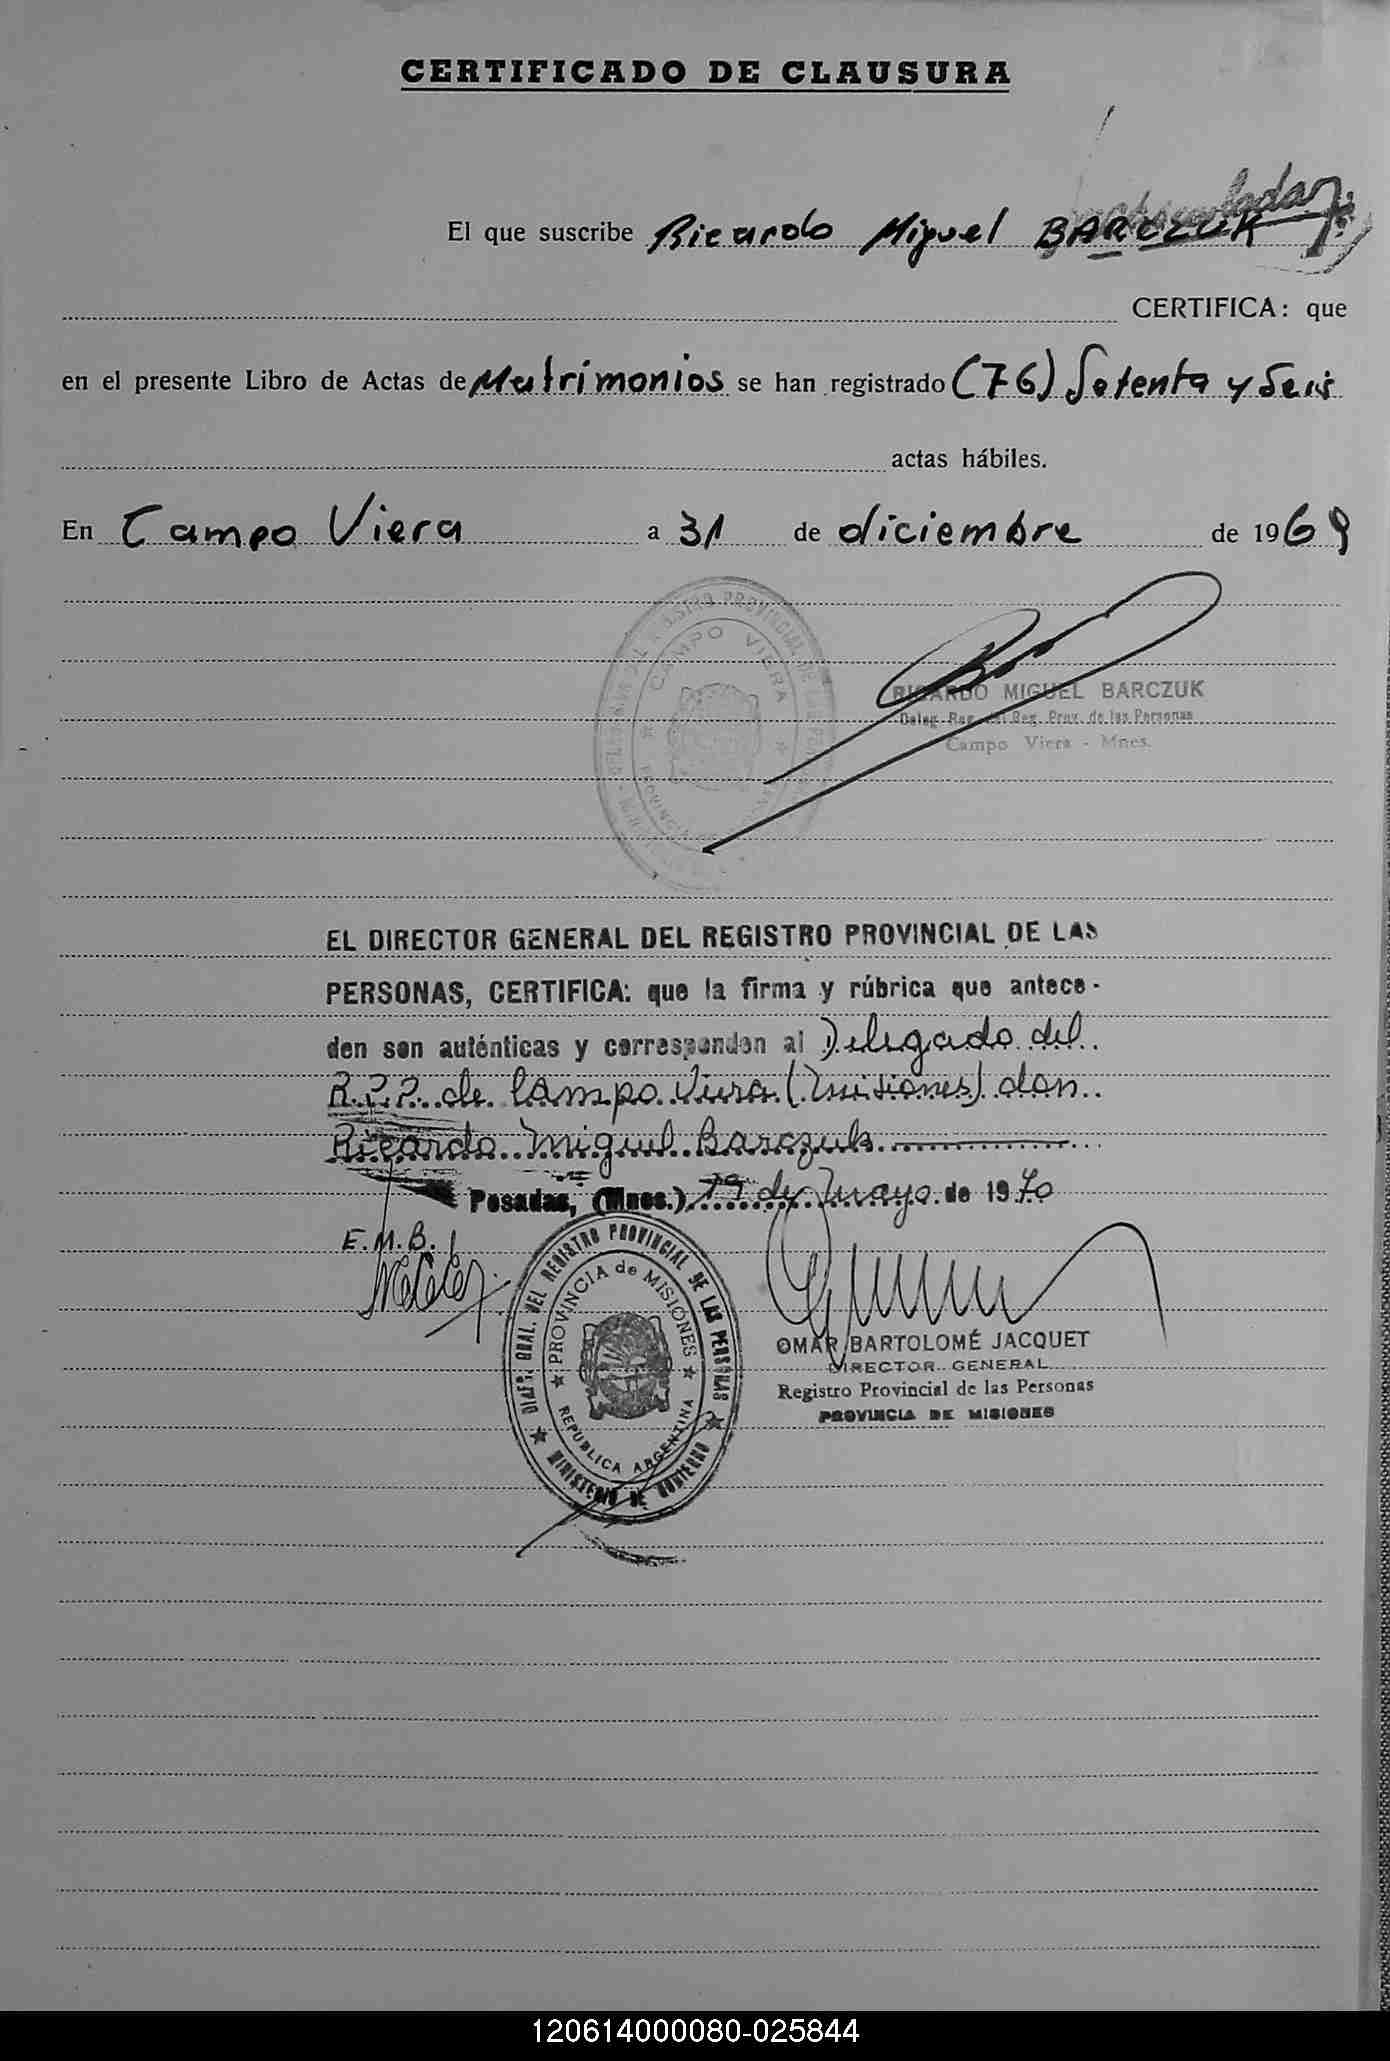 CERTIFICADO DE CLAUSURA
El que suscribe Ricardo Miguel BARCZUK
CERTIFICA: que
en el presente Libro de Actas de Matrimonios se han registrado (76) Setenta y Seis
actas hábiles.
En Campo Viera a 31 de diciembre de 1969
CAMPO VIERA
RICARDO MIGUEL BARCZUK
Deleg. Reg. del Reg. Prov. de las Personas
Campo Viera - Mnes.
EL DIRECTOR GENERAL DEL REGISTRO PROVINCIAL DE LAS
PERSONAS, CERTIFICA: que la firma y rúbrica que antece-
den son auténticas y corresponden al Delegado del
R.P.P. de Campo Viera (Misiones) don
Ricardo Miguel Barczuk
Posadas, (Mnes.) 19 de Mayo de 1970
E.M.B.
DIREC. GRAL. DEL REGISTRO PROVINCIAL DE LAS PERSONAS
PROVINCIA de MISIONES
REPUBLICA ARGENTINA
MINISTERIO DE GOBIERNO
OMAR BARTOLOMÉ JACQUET
DIRECTOR GENERAL
Registro Provincial de las Personas
PROVINCIA DE MISIONES
120614000080-025844